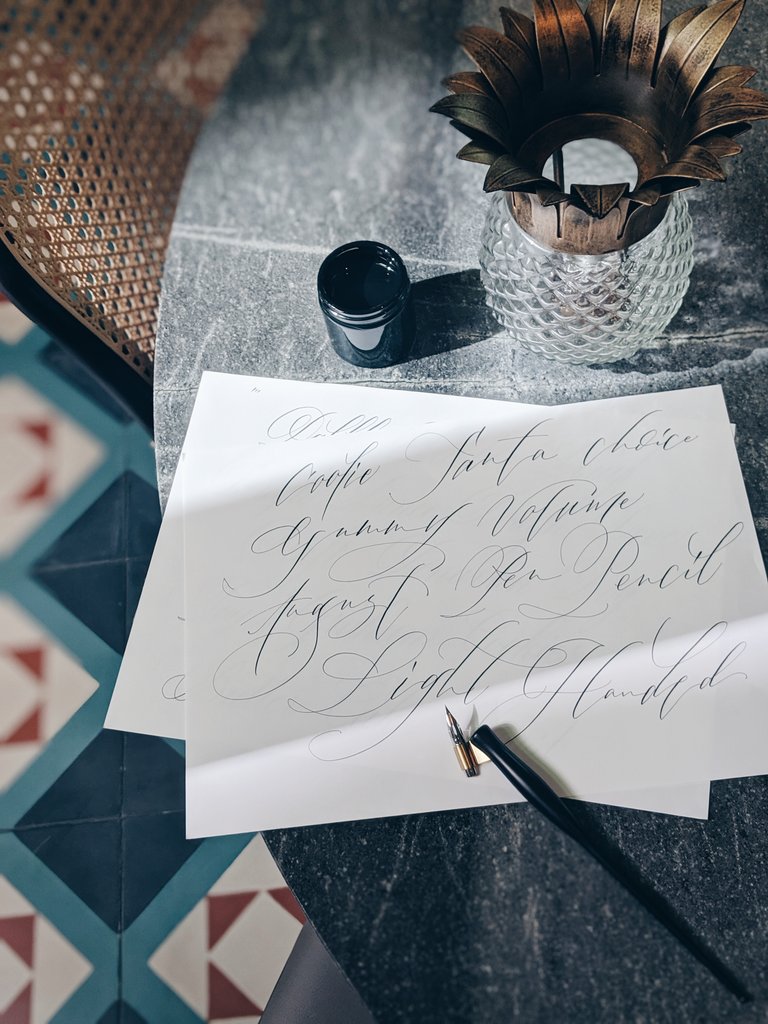 Cookie Santa choice
Gummy Volume
August Pen Pencil
Light Handed